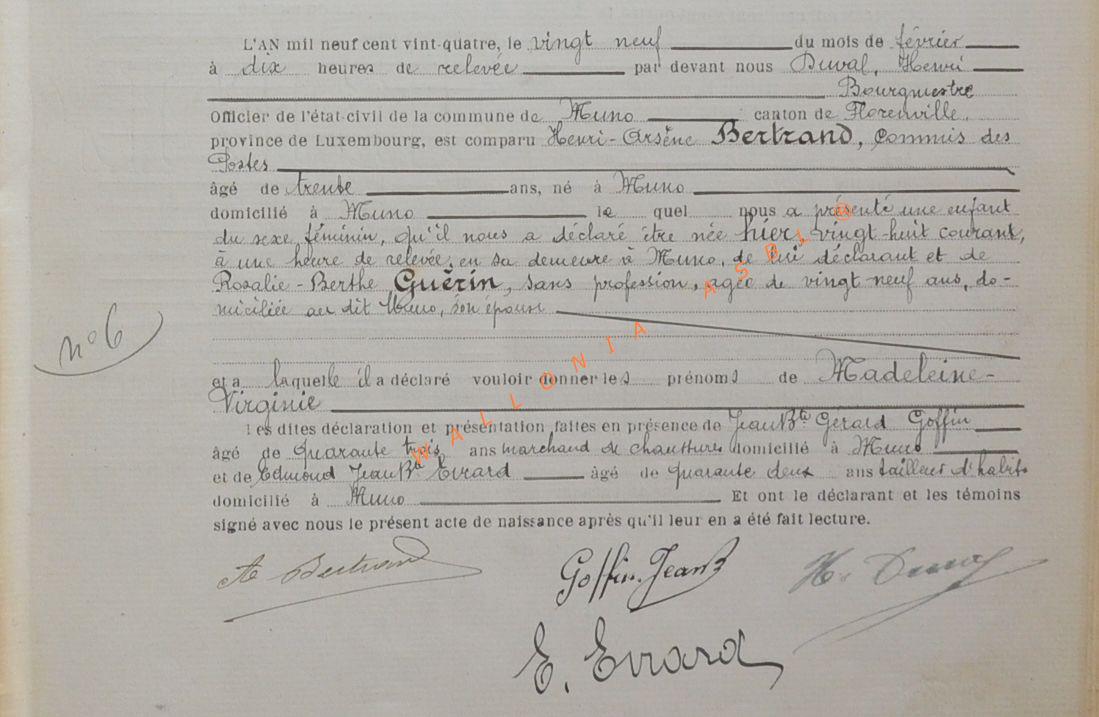 L'AN mil neuf cent vint-quatre, le vingt neuf du mois de février
à dix heures de relevée par devant nous Duval, Henri
Bourgmestre
Officier de l'état-civil de la commune de Muno canton de Florenville,
province de Luxembourg, est comparu Henri-Arsène Bertrand, Commis des
Postes
âgé de trente ans, né à Muno
domicilié à Muno le quel nous a présenté une enfant
du sexe féminin, qu'il nous a déclaré être née hier, vingt-huit courant,
à une heure de relevée, en sa demeure à Muno, de lui déclarant et de
Rosalie-Berthe Guérin, sans profession, agée de vingt neuf ans, do-
miciliée au dit Muno, son épouse
et a laquelle il a déclaré vouloir donner les prénoms de Madeleine-
Virginie
Les dites déclaration et présentation faites en présence de Jean Bte Gérard Goffin
nº 6
âgé de quarante trois ans marchand de chaussures domicilié à Muno
et de Edmond Jean Bte Evrard âgé de quarante deux ans tailleur d'habits
domicilié à Muno Et ont le déclarant et les témoins
signé avec nous le présent acte de naissance après qu'il leur en a été fait lecture.
A Bertrand
Goffin-Jean B
H. Duval
E. Evrard
WALLONIA ASBL ©